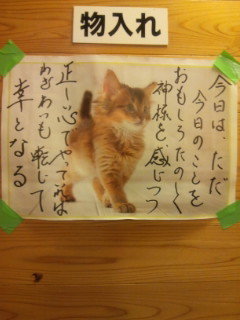 物入れ
今日は、ただ
今日のことを
おもしろたのしく
神様を感じつつ
正し心でやってれば
わざわいも転じて
幸となる